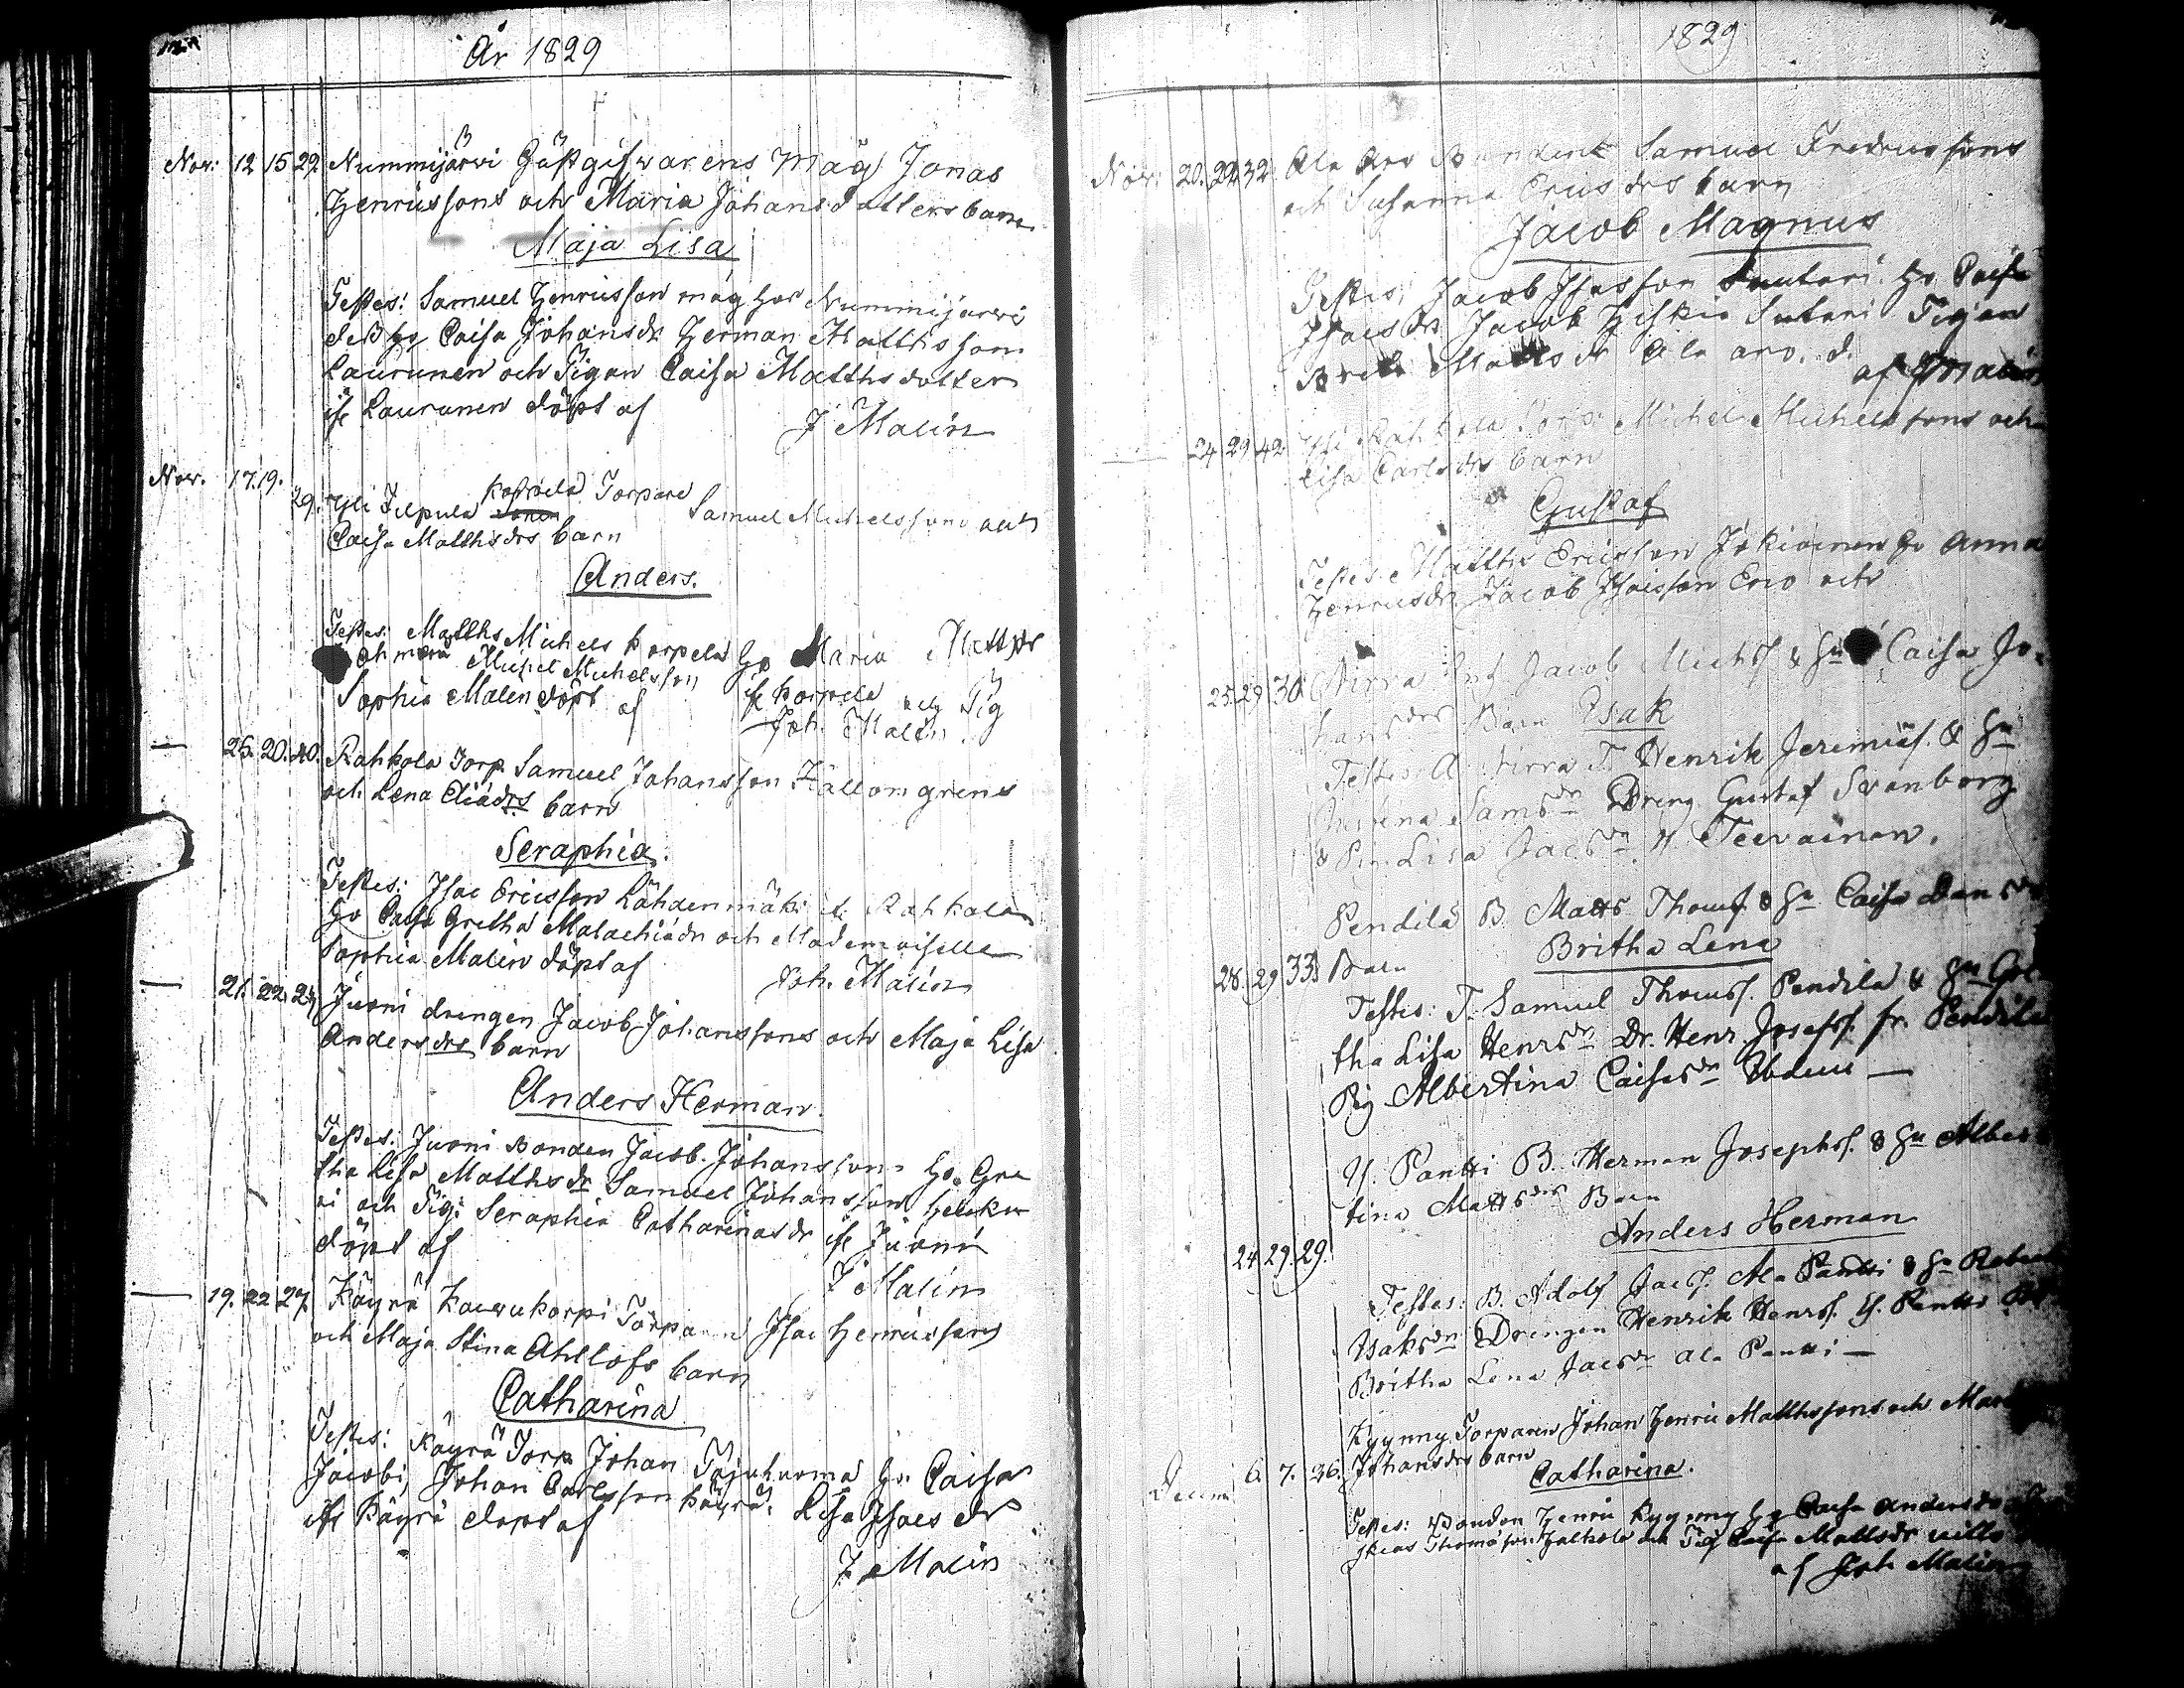 År 1829
Nov: 12 15 29. Nummijärvi Gästgifwarens Måg Jonas
Henricssons och Maria Johansdotters barn
Maja Lisa
Testes: Samuel Henricsson måg hos Nummijärvi
dess Ho Caisa Johansdr Herman Matthsson
Laurunen och Pigan Caisa Matthsdotter
ifr Laurunen döpt af
J Malin
Nov. 17. 19. 29. Yli Filpula Torpare Samuel Michelssons och
Caisa Matthsdrs barn
Anders.
Testes: Matths Michels Korpela Ho Maria Mattsdr
Michel Michelsson ifr Korpela och Pig
Sophia Malin döpt af
Joh. Malin
— 25. 20. 40. Rahkola Torp. Samuel Johansson Hällongrens
och Lena Eliædrs barn
Seraphia.
Testes: Isac Ericsson Lähdenmäki ifr Rahkola
Ho Caisa Gretha Malachiædr och Mademoiselle
Sophia Malin döpt af
Joh. Malin
— 21. 22. 27 Juoni drengen Jacob Johanssons och Maja Lisa
Andersdrs barn
Anders Herman.
Testes: Juoni Bonden Jacob Johansson Ho. Gre
tha Lisa Matthsdr Samuel Johansson
ri och Pig: Seraphia Catharinasdr ifr Juoni
döpt af
J Malin
— 19. 22 27. Käyrä Torparen Isac Henricssons
och Maja Stina Ahllofs barn
Catharina
Testes: Käyrä Torp. Johan Ho. Caisa
Jacobi, Johan Carlsson Käyrä. Lisa Isacs dr
ifr Käyrä döpt af
J. Malin
1829
Nov. 20. 22. 32. Ala Aro Bonden Samuel Fredricssons
och Susanna Ericsdrs barn
Jacob Magnus
Testes: Jacob Isacsson Sautari. Ho Caisa
Isacsdr Jacob Sutari Pigan
Brita Mattsdr Ala aro. d.
af J Malin
24 29 42. Yli Rahkola Torp. Michel Michelssons och
Lisa Carlsdrs barn
Gustaf
Testes. Matths Ericsson Jokioinen Ho Anna
Henricsdr Jacob Isacsson och
25. 29 30. Jacob Michss & Hu Caisa Jo-
hansdrs Barn Isak
Testes: T. Henrik Jeremiæs. & Hu
Samsdr Dreng Gustaf Svanborg
& Pin. Lisa Jacsdr Teevainen.
Pendilä B. Matts Thomss. & Hu Caisa Dansdrs
28. 29 33. Barn
Britha Lena
Testes: T. Samuel Thomss. Pendilä & Hu Gre
tha Lisa Henrsdr Dr. Henr. Josefss. fr. Pendilä
Pig Albertina Caisasdr Ibdm —
Y. Pantti B. Herman Josephss. & Hu Alber
tina Mattsdrs Barn
Anders Herman
24 29. 29.
Testes: B. Adolf Jacss. Ala Pantti & Hu
Isaksdr Drengen Henrik Henrss. Y. Pantti
Britha Lena Jacsdr Ala Pantti —
Kyynny Torparen Johan Henric Matthssons och
Decem 6. 7. 26. Johansdrs barn
Catharina.
Testes: Bonden Henric Kyynny Ho Caisa Andersdr
Thomasson och Pig Caisa Mattsdr
af Joh Malin